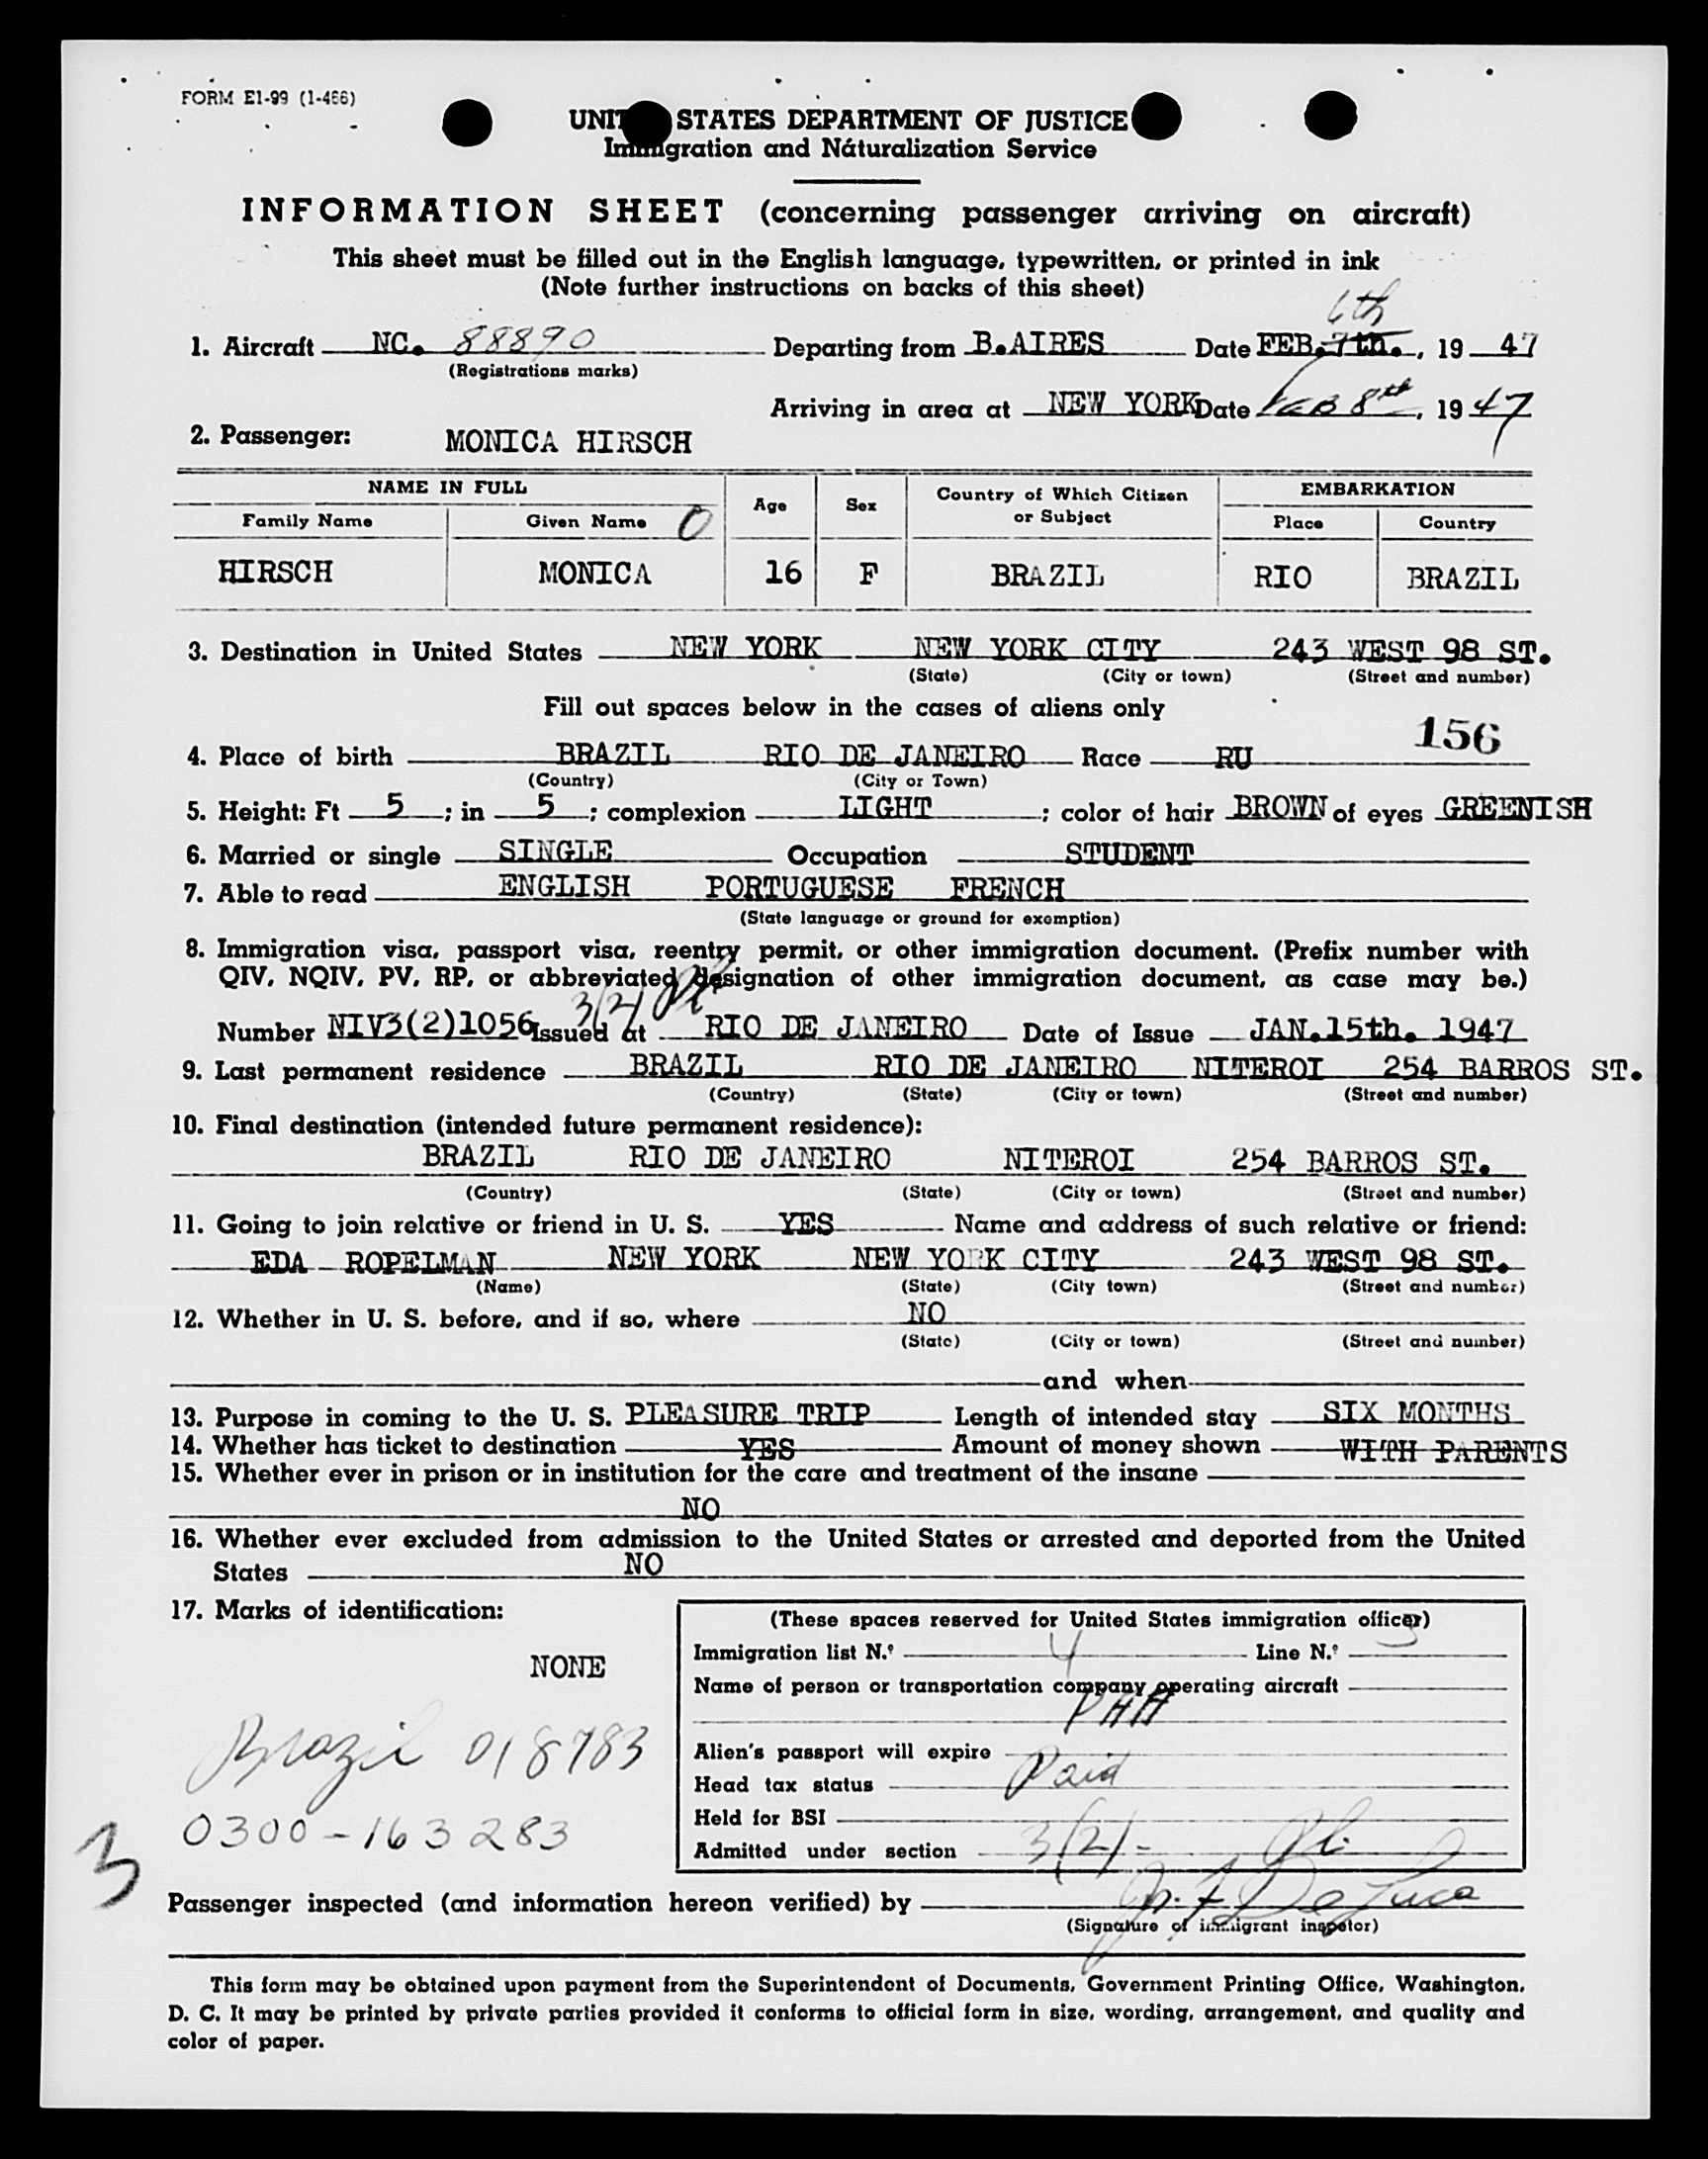 FORM E1-99 (1-466)
UNITED STATES DEPARTMENT OF JUSTICE
Immigration and Naturalization Service
INFORMATION SHEET (concerning passenger arriving on aircraft)
This sheet must be filled out in the English language, typewritten, or printed in ink
(Note further instructions on backs of this sheet)
6th
1. Aircraft NC. 88890 Departing from B.AIRES Date FEB. 7th., 19 47
(Registrations marks)
Arriving in area at NEW YORK Date FEB 8th, 19 47
2. Passenger: MONICA HIRSCH
NAME IN FULL Age Sex Country of Which Citizen or Subject EMBARKATION
Family Name Given Name 0 Place Country
HIRSCH MONICA 16 F BRAZIL RIO BRAZIL
3. Destination in United States NEW YORK NEW YORK CITY 243 WEST 98 ST.
(State) (City or town) (Street and number)
Fill out spaces below in the cases of aliens only
156
4. Place of birth BRAZIL RIO DE JANEIRO Race RU
(Country) (City or Town)
5. Height: Ft 5 ; in 5 ; complexion LIGHT ; color of hair BROWN of eyes GREENISH
6. Married or single SINGLE Occupation STUDENT
7. Able to read ENGLISH PORTUGUESE FRENCH
(State language or ground for exemption)
8. Immigration visa, passport visa, reentry permit, or other immigration document. (Prefix number with
QIV, NQIV, PV, RP, or abbreviated designation of other immigration document, as case may be.)
3/2/
Number NIV3(2)1056 Issued at RIO DE JANEIRO Date of Issue JAN.15th. 1947
9. Last permanent residence BRAZIL RIO DE JANEIRO NITEROI 254 BARROS ST.
(Country) (State) (City or town) (Street and number)
10. Final destination (intended future permanent residence):
BRAZIL RIO DE JANEIRO NITEROI 254 BARROS ST.
(Country) (State) (City or town) (Street and number)
11. Going to join relative or friend in U. S. YES Name and address of such relative or friend:
EDA ROPELMAN NEW YORK NEW YORK CITY 243 WEST 98 ST.
(Name) (State) (City town) (Street and number)
12. Whether in U. S. before, and if so, where NO
(State) (City or town) (Street and number)
and when
13. Purpose in coming to the U. S. PLEASURE TRIP Length of intended stay SIX MONTHS
14. Whether has ticket to destination YES Amount of money shown WITH PARENTS
15. Whether ever in prison or in institution for the care and treatment of the insane
NO
16. Whether ever excluded from admission to the United States or arrested and deported from the United
States NO
17. Marks of identification:
NONE
Brazil 018783
0300-163283
3
(These spaces reserved for United States immigration officer)
Immigration list N.º 4 Line N.º 3
Name of person or transportation company operating aircraft
PAA
Alien's passport will expire
Head tax status Paid
Held for BSI
Admitted under section 3/2/-
Passenger inspected (and information hereon verified) by
(Signature of immigrant inspetor)
This form may be obtained upon payment from the Superintendent of Documents, Government Printing Office, Washington,
D. C. It may be printed by private parties provided it conforms to official form in size, wording, arrangement, and quality and
color of paper.